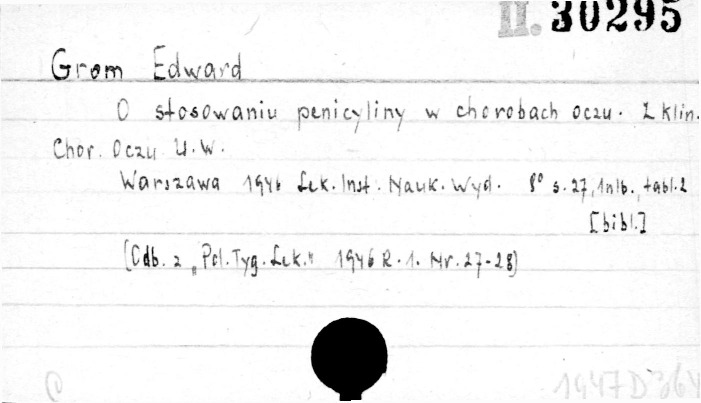 II. 30295
Grom Edward
O stosowaniu penicyliny w chorobach oczu. Z Klin.
Chor. Oczu U.W.
Warszawa 1946 Lek. Inst. Nauk. Wyd. 8° s. 27, 1 nlb., tabl. 2
[bibl.]
(Odb. z „Pol. Tyg. Lek." 1946 R. 1. Nr. 27-28)
C 1947 D 364